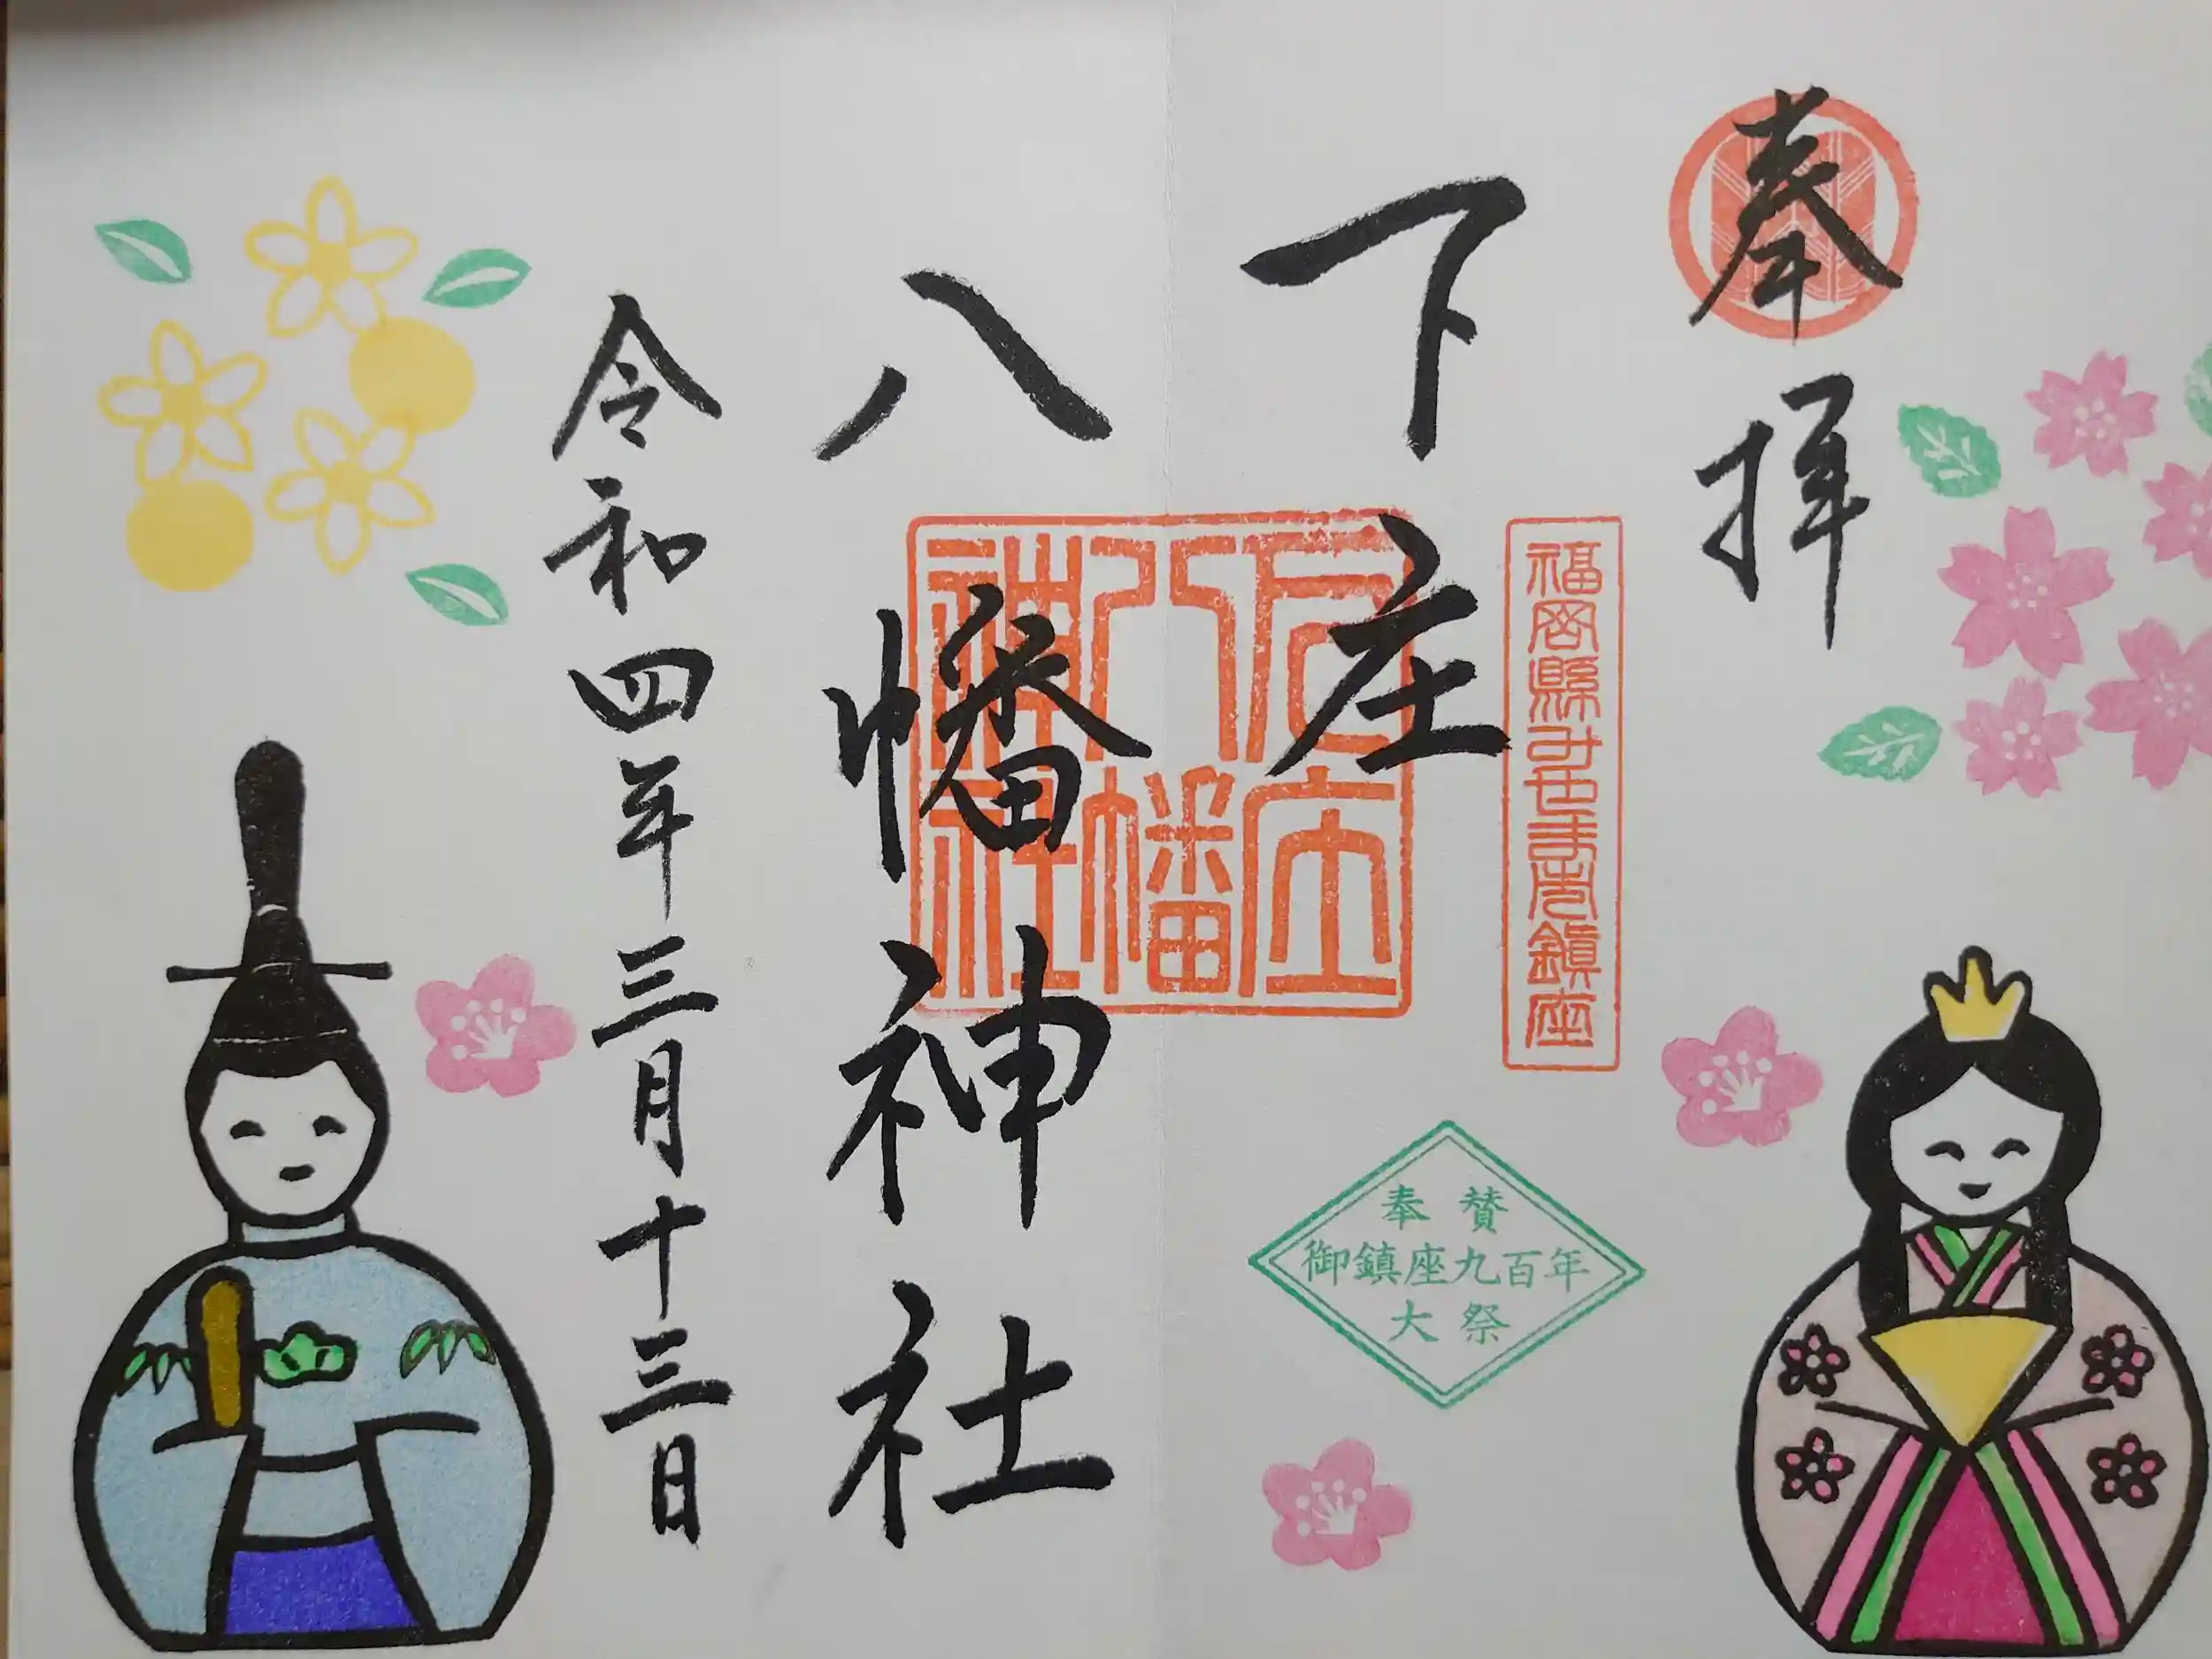 奉拝
福岡縣みやま市鎮座
下庄
八幡神社
下庄
八幡
神社
奉賛
御鎮座九百年
大祭
令和四年三月十三日